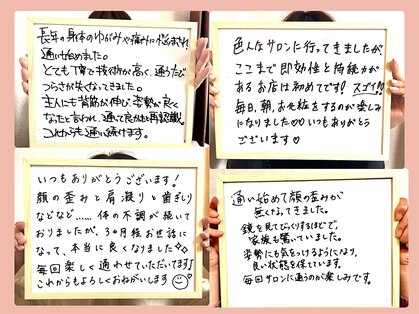 長年の身体のゆがみや痛みに悩まされ
通い始めました。
とても丁寧で技術が高く、通うたび
つらさが失くなってきました。
主人にも背筋が伸び、姿勢が良く
なったと言われ、通って良かったと再認識。
これからも通い続けます。
色んなサロンに行ってきましたが
ここまで即効性と持続力が
あるお店は初めてです！スゴイ!!
毎日、朝、お化粧をするのが楽しみ
になりました♡♡いつもありがとう
ございます♡
いつもありがとうございます！
顔の歪みと肩凝りと歯ぎしり
などなど……体の不調が続いて
おりましたが、3ヶ月程お世話に
なって、本当に良くなりました✧✧
毎回楽しく通わせていただいてます♪
これからもよろしくおねがいします
通い始めて顔の歪みが
無くなってきました。
鏡を見てびっくりするほどで、
家族も驚いていました。
姿勢にも気をつけるようになり、
良い状態を保てています。
毎回サロンに通うのが楽しみです。